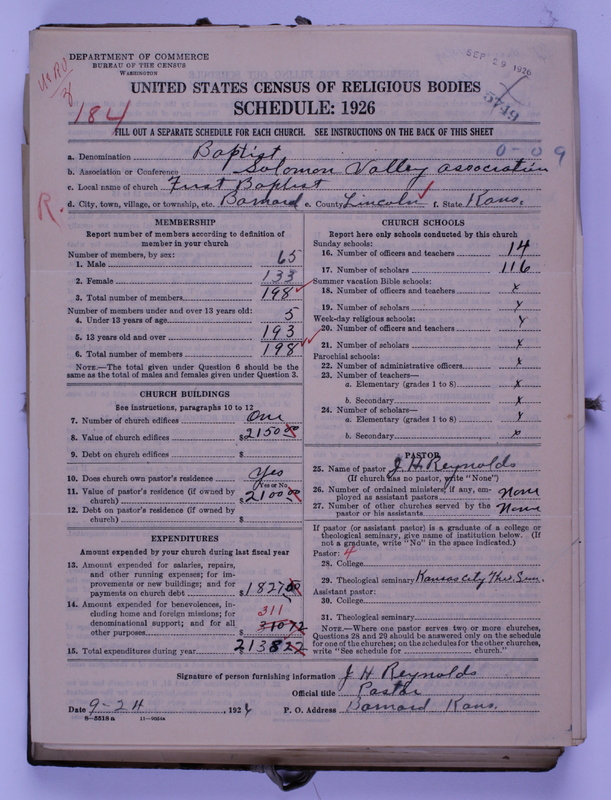 DEPARTMENT OF COMMERCE
BUREAU OF THE CENSUS
WASHINGTON
SEP 29 1926
5749
184
UNITED STATES CENSUS OF RELIGIOUS BODIES
SCHEDULE: 1926
FILL OUT A SEPARATE SCHEDULE FOR EACH CHURCH. SEE INSTRUCTIONS ON THE BACK OF THIS SHEET
0-09
a. Denomination Baptist
b. Association or Conference Solomon Valley association
c. Local name of church First Baptist
R.
d. City, town, village, or township, etc. Barnard e. County Lincoln f. State Kans.
MEMBERSHIP
Report number of members according to definition of
member in your church
Number of members, by sex:
1. Male 65
2. Female 133
3. Total number of members 198
Number of members under and over 13 years old:
4. Under 13 years of age 5
5. 13 years old and over 193
6. Total number of members 198
NOTE.—The total given under Question 6 should be the
same as the total of males and females given under Question 3.
CHURCH BUILDINGS
See instructions, paragraphs 10 to 12
7. Number of church edifices One
8. Value of church edifices $ 2150 00
9. Debt on church edifices $
10. Does church own pastor's residence Yes
Yes or No
11. Value of pastor's residence (if owned by
church) $ 2100 00
12. Debt on pastor's residence (if owned by
church) $
EXPENDITURES
Amount expended by your church during last fiscal year
13. Amount expended for salaries, repairs,
and other running expenses; for im-
provements or new buildings; and for
payments on church debt $ 1827 00
14. Amount expended for benevolences, in-
cluding home and foreign missions; for
denominational support; and for all
other purposes $ 310 72
311
15. Total expenditures during year $ 2138 22
CHURCH SCHOOLS
Report here only schools conducted by this church
Sunday schools:
16. Number of officers and teachers 14
17. Number of scholars 116
Summer vacation Bible schools:
18. Number of officers and teachers x
19. Number of scholars x
Week-day religious schools:
20. Number of officers and teachers x
21. Number of scholars x
Parochial schools:
22. Number of administrative officers x
23. Number of teachers—
a. Elementary (grades 1 to 8) x
b. Secondary x
24. Number of scholars—
a. Elementary (grades 1 to 8) x
b. Secondary x
PASTOR
25. Name of pastor J. H. Reynolds
(If church has no pastor, write "None")
26. Number of ordained ministers, if any, em-
ployed as assistant pastors None
27. Number of other churches served by the
pastor or his assistants None
If pastor (or assistant pastor) is a graduate of a college or
theological seminary, give name of institution below. (If
not a graduate, write "No" in the space indicated.)
Pastor: 4
28. College
29. Theological seminary Kansas City Theo. Sem.
Assistant pastor:
30. College
31. Theological seminary
NOTE.—Where one pastor serves two or more churches,
Questions 28 and 29 should be answered only on the schedule
for one of the churches; on the schedules for the other churches,
write "See schedule for church."
Signature of person furnishing information J H Reynolds
Official title Pastor
Date 9-24, 192 P. O. Address Barnard Kans.
8-5518 a